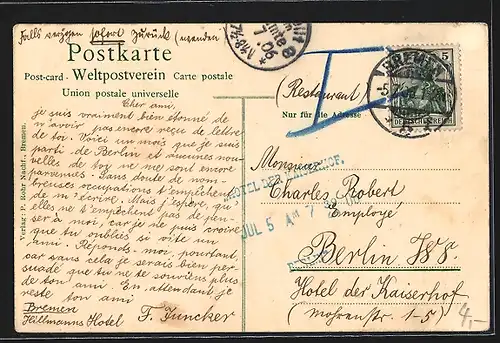 Falls verzogen sofort zurück (wenden)
Postkarte
Post-card - Weltpostverein Carte postale
Union postale universelle
Cher ami,
je suis vraiment bien étonné de
n'avoir pas encore reçu de lettre
de toi. Voici un mois que je suis
parti de Berlin et aucunes nou-
velles de toi ne me sont encore
parvenues. Sans doute de nom-
breuses occupations t'empêchent
de m'écrire. Mais j'espère, qu'
elles ne t'empêchent pas de pen-
ser à moi, car je ne puis croire
que tu oublies si vite un
ami. Réponds-moi, pourtant,
car sans cela je serais bien per-
suadé que tu ne te souviens plus
de ton ami. En attendant je
reste ton ami
F. Juncker
Bremen
Hillmanns Hotel
Verlag: P. Rohr Nachf., Bremen.
BREMEN
5
DEUTSCHES REICH
(Restaurant)
Nur für die Adresse
Monsieur
HOTEL DER KAISERHOF.
JUL 5 AM 7
Charles Robert
Employé
Berlin W8.
Hotel der Kaiserhof
(Mohrenstr. 1-5)
4,-